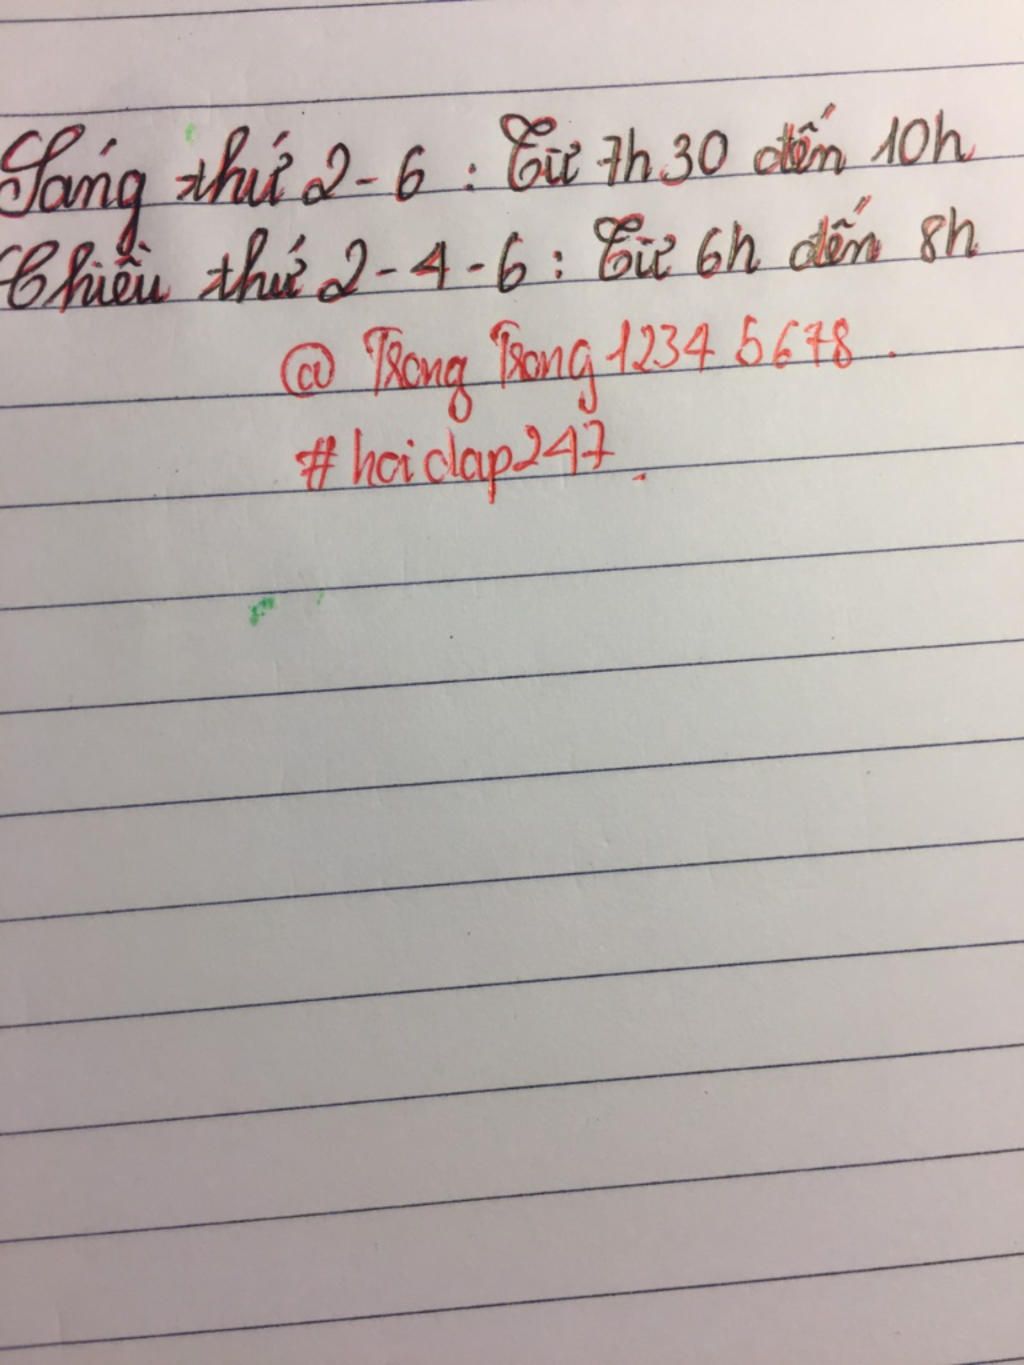 Sáng thứ 2-6 : Từ 7h30 đến 10h
Chiều thứ 2-4-6 : Từ 6h đến 8h
@ Trong Trong 12345678.
#hoidap247.